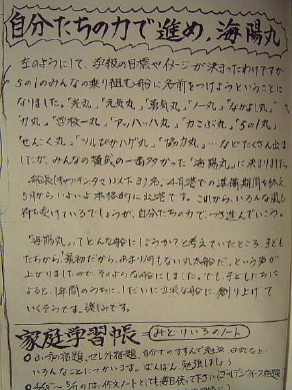 自分たちの力で進め。海陽丸
左のようにして、学級の目標やイメージが決まったわけですが
5の1のみんなの乗り組む船に名前をつけようということに
なりました。「光丸」「元気丸」「勇気丸」「ノー丸」「なかよし丸」
「力丸」「学校一丸」「アッハッハ丸」「かさぶ丸」「5の1丸」
「せんこく丸」「ツルぴかハゲ丸」「協力丸」…などたくさん出ま
したが、みんなの賛成の一番多かった「海陽丸」に決まりました。
船長(キャプテンタマ)以下37名。4月港での準備期間を終え
5月からいよいよ本格的に出港です。これから、いろんな嵐も
待ち受けているでしょうが、自分たちの力でつき進んでいこう。
「海陽丸」ってどんな船にしようか?と考えていたところ、子ども
たちから「最初だから、あまり何もない丸太船だ」という声が
上がりましたので、そのような船にしました。でも、子どもたちに
よると、1年間のうちに、しだいに立派な船に創り上げて
いくそうです。楽しみです。
家庭学習帳=みどりいろのノート
いろんなことにつかいます。ばんばん勉強しましょう